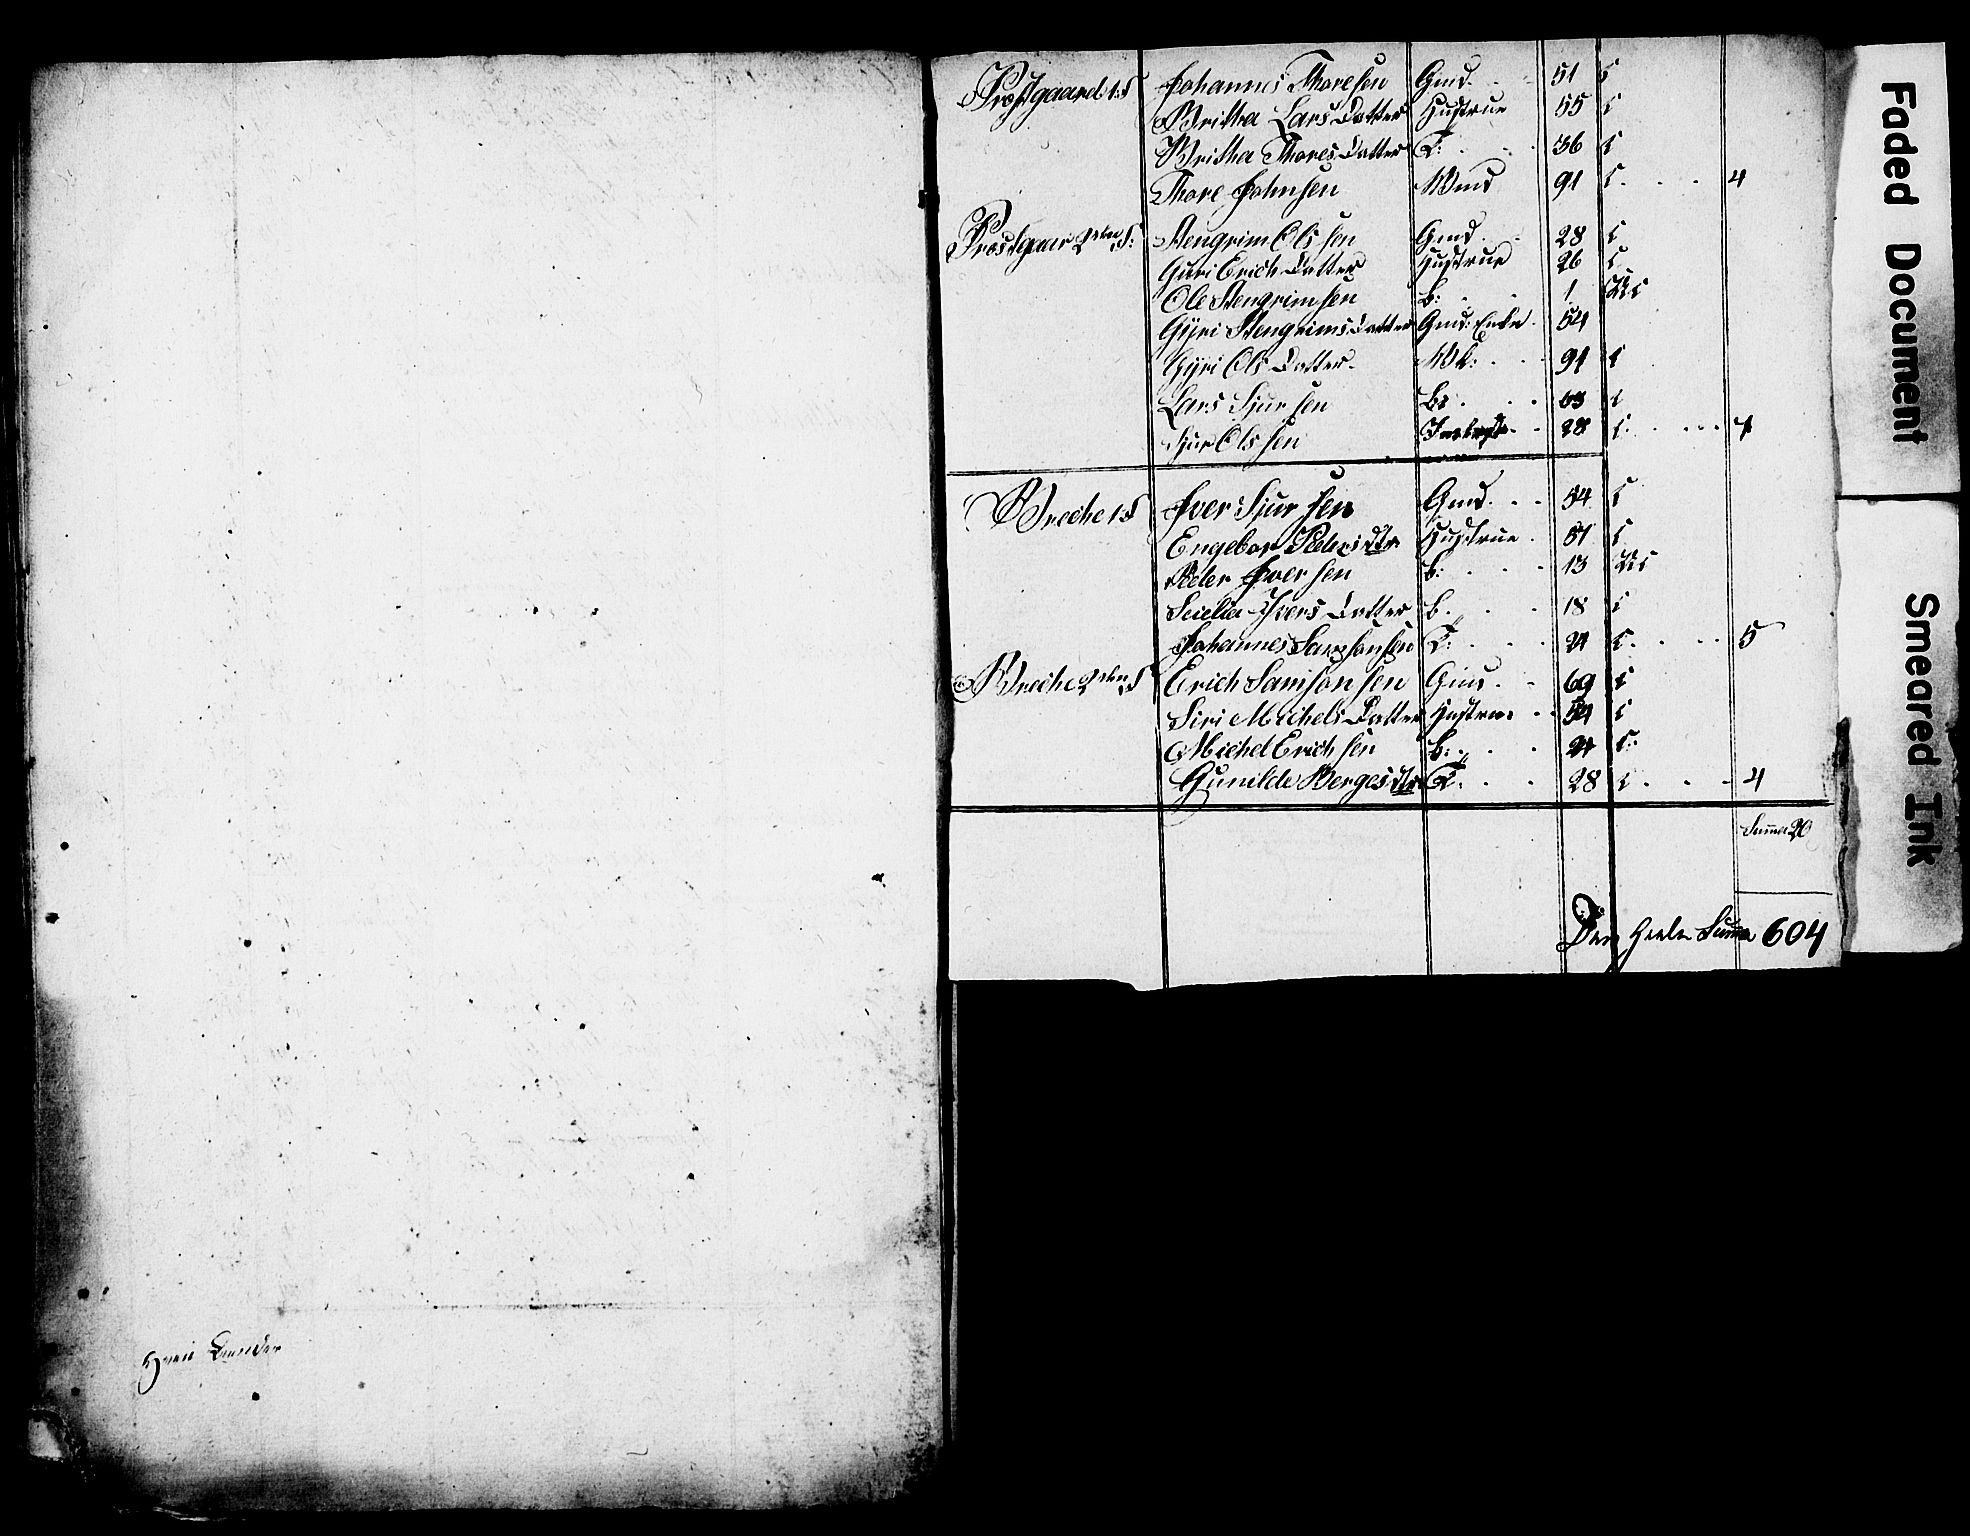 Prostgaard 1: S Johannes Thoresen Gmd. 51 C
Britha Lars Datter Hustrue 55 C
Britha Thores Datter T: 36 C
Thore Johnsen Mand 91 C. 4
Prostgaar 2den S: Stengrim Ols sen Gmd 28 C
Guri Erich Datter Hustrue 26 C
Ole Stengrimsen b: 1 UC
Gyri Stengrims Datter Gmd: Enke 54
Gyri Ols Datter. 91 C
Lars Sjur sen 63 C
Sjur Ols sen 28 C:
Breche 1 S Iver Sjur sen Gmd. 54 C
Engebor Peders dtr Hustrue 51 C
Peder Iver sen b: 13 UC
Ivers Datter b. 18 C
Johannes Samsonsen T: 24 C. 5
Breche 2den S Erich Samson sen Gmd. 69 C
Siri Michels Datter Hustrue 54 C
Michel Erich sen b: 24 C:
Gunilde Berges dtr T. 28 C 4
Summa 20
Den Heele Summa 604
Faded Document
Smeared Ink